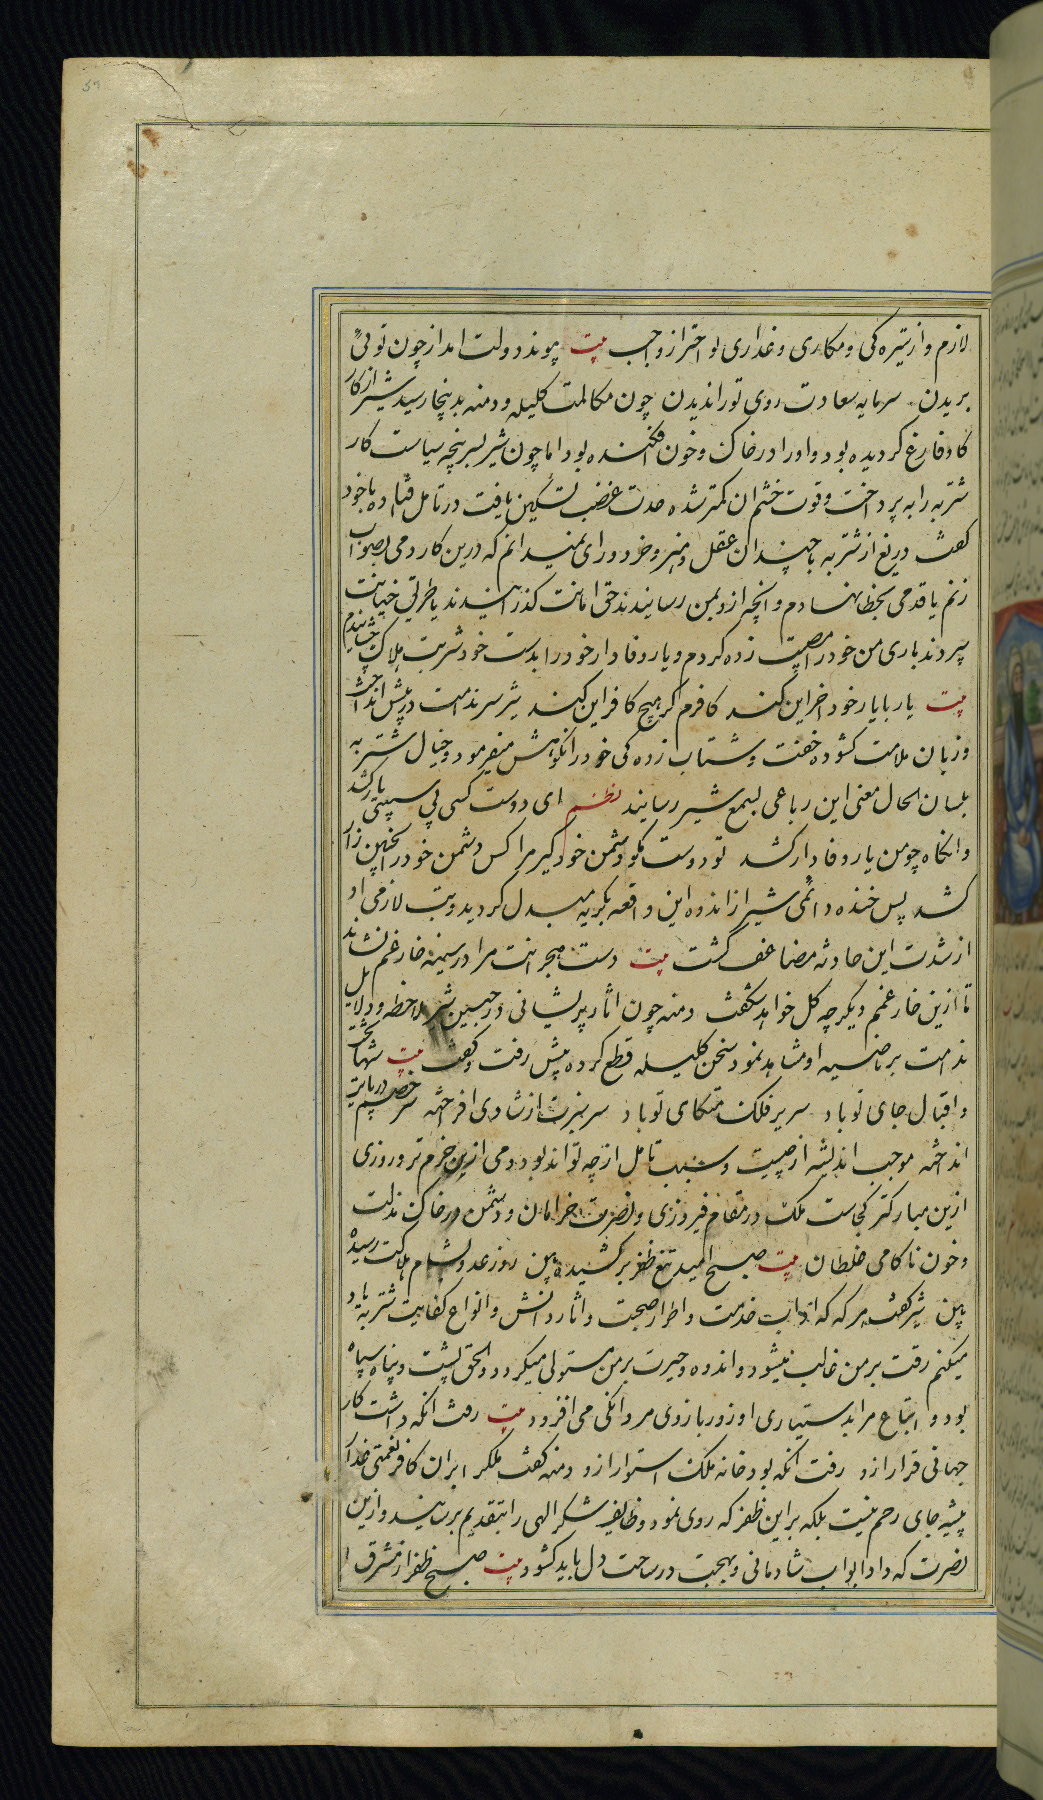 لازم و از تیره کی و مکاری و غداری او احتراز واجب بیت پیوند دولت امد از چون توئی
بریدن سرمایه سعادت روی تو را ندیدن چون مکالمت کلیله و دمنه بدینجا رسید شیر از کار
کاو فارغ کردیده بود و او را در خاک و خون افکنده بود اما چون شیر بسرپنجه سیاست کار
شتربه را به پرداخت و قوت خشم ان کمتر شده حدت غضب تسکین یافت در تامل افتاده با خود
کفت دریغ از شتربه با چندان عقل و هنر و خرد و رای نمیدانم که درین کار دمی بصواب
زنم یا قدمی بخطا نهادم و انچه از و بمن رسانیدند حق امانت کذرانیدند یا طریق خیانت
سپردند باری من خود را مصیبت زده کردم و یار وفادار خود را بدست خود شربت هلاک چشانیدم
بیت یار با یار خود اخر این کند کافرم کر هیچ کافر این کند شیر سر ندامت در پیش انداخت
و زبان ملامت کشوده خفت و شتاب زده کی خود را نکوهش میفرمود و خیال شتربه
بلسان الحال معنی این رباعی بسمع شیر رسانید نظم ای دوست کسی بی سببی یار کشد
وانکاه چو من یار وفادار کشد تو دوست مکو دشمن خود کیر مرا کس دشمن خود را بچنین زار
کشد پس خنده دائمی شیر از اندوه این واقعه بکریه مبدل کردید و تب لازمی او
از شدت این حادثه مضاعف کشت بیت دست هجرانت مرا در سینه خار غم نشاند
تا ازین خار غمم دیکر چه کل خواهد شکفت دمنه چون اثار پریشانی در جبین شیر ملاحظه و دلایل
ندامت بر ناصیه او مشاهده نمود سخن کلیله قطع کرده پیش رفت و کفت بیت شها تخت
و اقبال جای تو باد سریر فلک متکای تو باد سر بزرت از شادی افراخته سر خصم در پایت
انداخته موجب اندیشه از چیست و سبب تامل از چه تواند بود دمی ازین خرم تر و روزی
ازین مبارکتر کجاست ملک در مقام فیروزی و نصرت خرامان و دشمن در خاک مذلت
و خون ناکامی غلطان بیت صبح امید تیغ ظفر برکشیده بین روز عدو بشام هلاکت رسیده
بین شیر کفت هرکه که اداب خدمت و اطراز صحبت و اثار دانش و انواع کفایت شتربه یاد
میکنم رقت بر من غالب میشود و اندوه و حیرت بر من مستولی میکردد و الحق پشت و پناه سپاه
بود و اتباع مرا بدستیاری او زور بازوی مردانکی می افزود بیت رفت انکه داشت کار
جهانی قرار ازو رفت انکه بود خانه ملک استوار ازو دمنه کفت ملک را بران کافر نعمتی غدار
پیشه جای رحم نیست بلکه براین ظفر که روی نمود وظایف شکر الهی را بتقدیم برسانید و ازین
نصرت که داد ابواب شادمانی و بهجت در ساحت دل باید کشود بیت صبح ظفر از مشرق ا